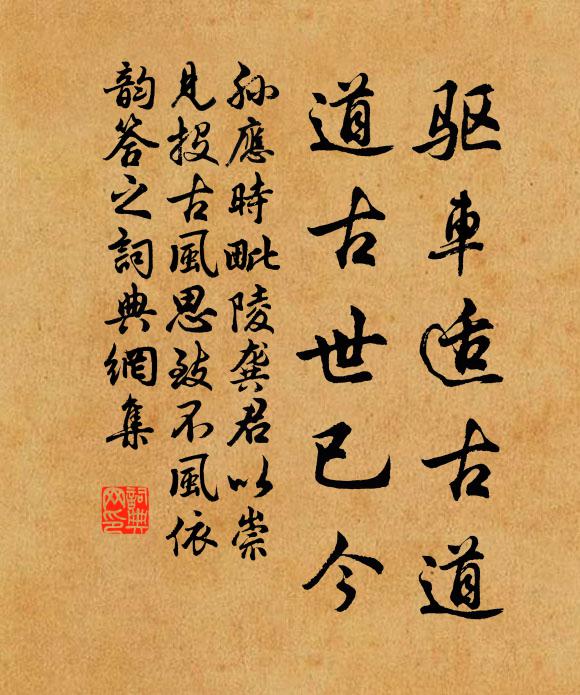 驱車适古道
道古世已今
孙應時毗陵龔君以崇
見投古風思致不風依
韵答之詞典網集
詞典
网印